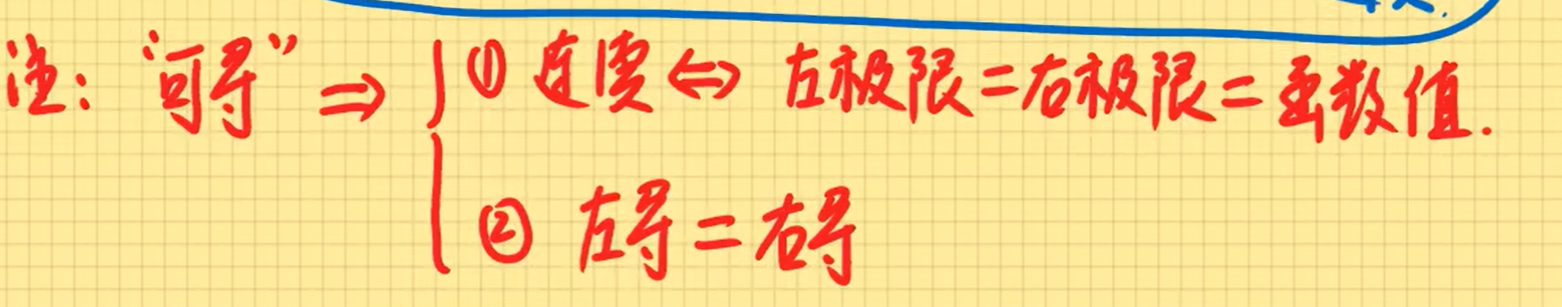 注: “可导” ⇒ { ① 连续 ⇔ 左极限 = 右极限 = 函数值.
② 左导 = 右导